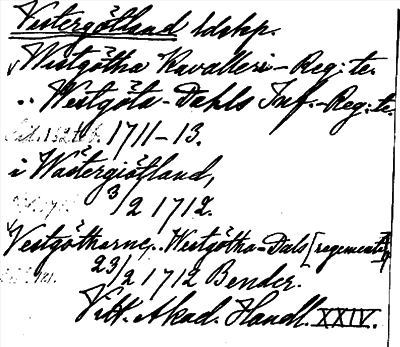 Västergötland ldskp.
"Westgötha Kavalleri-Reg:te.
.. Westgöta-Dahls Inf.-Reg:te.
1711-13.
i Wästergiötland,
3/2 1712.
"Vestgötharne,.. Westgötha-Dals [regemente]"
23/2 1712 Bender.
Vitt. Akad. Handl. XXIV.